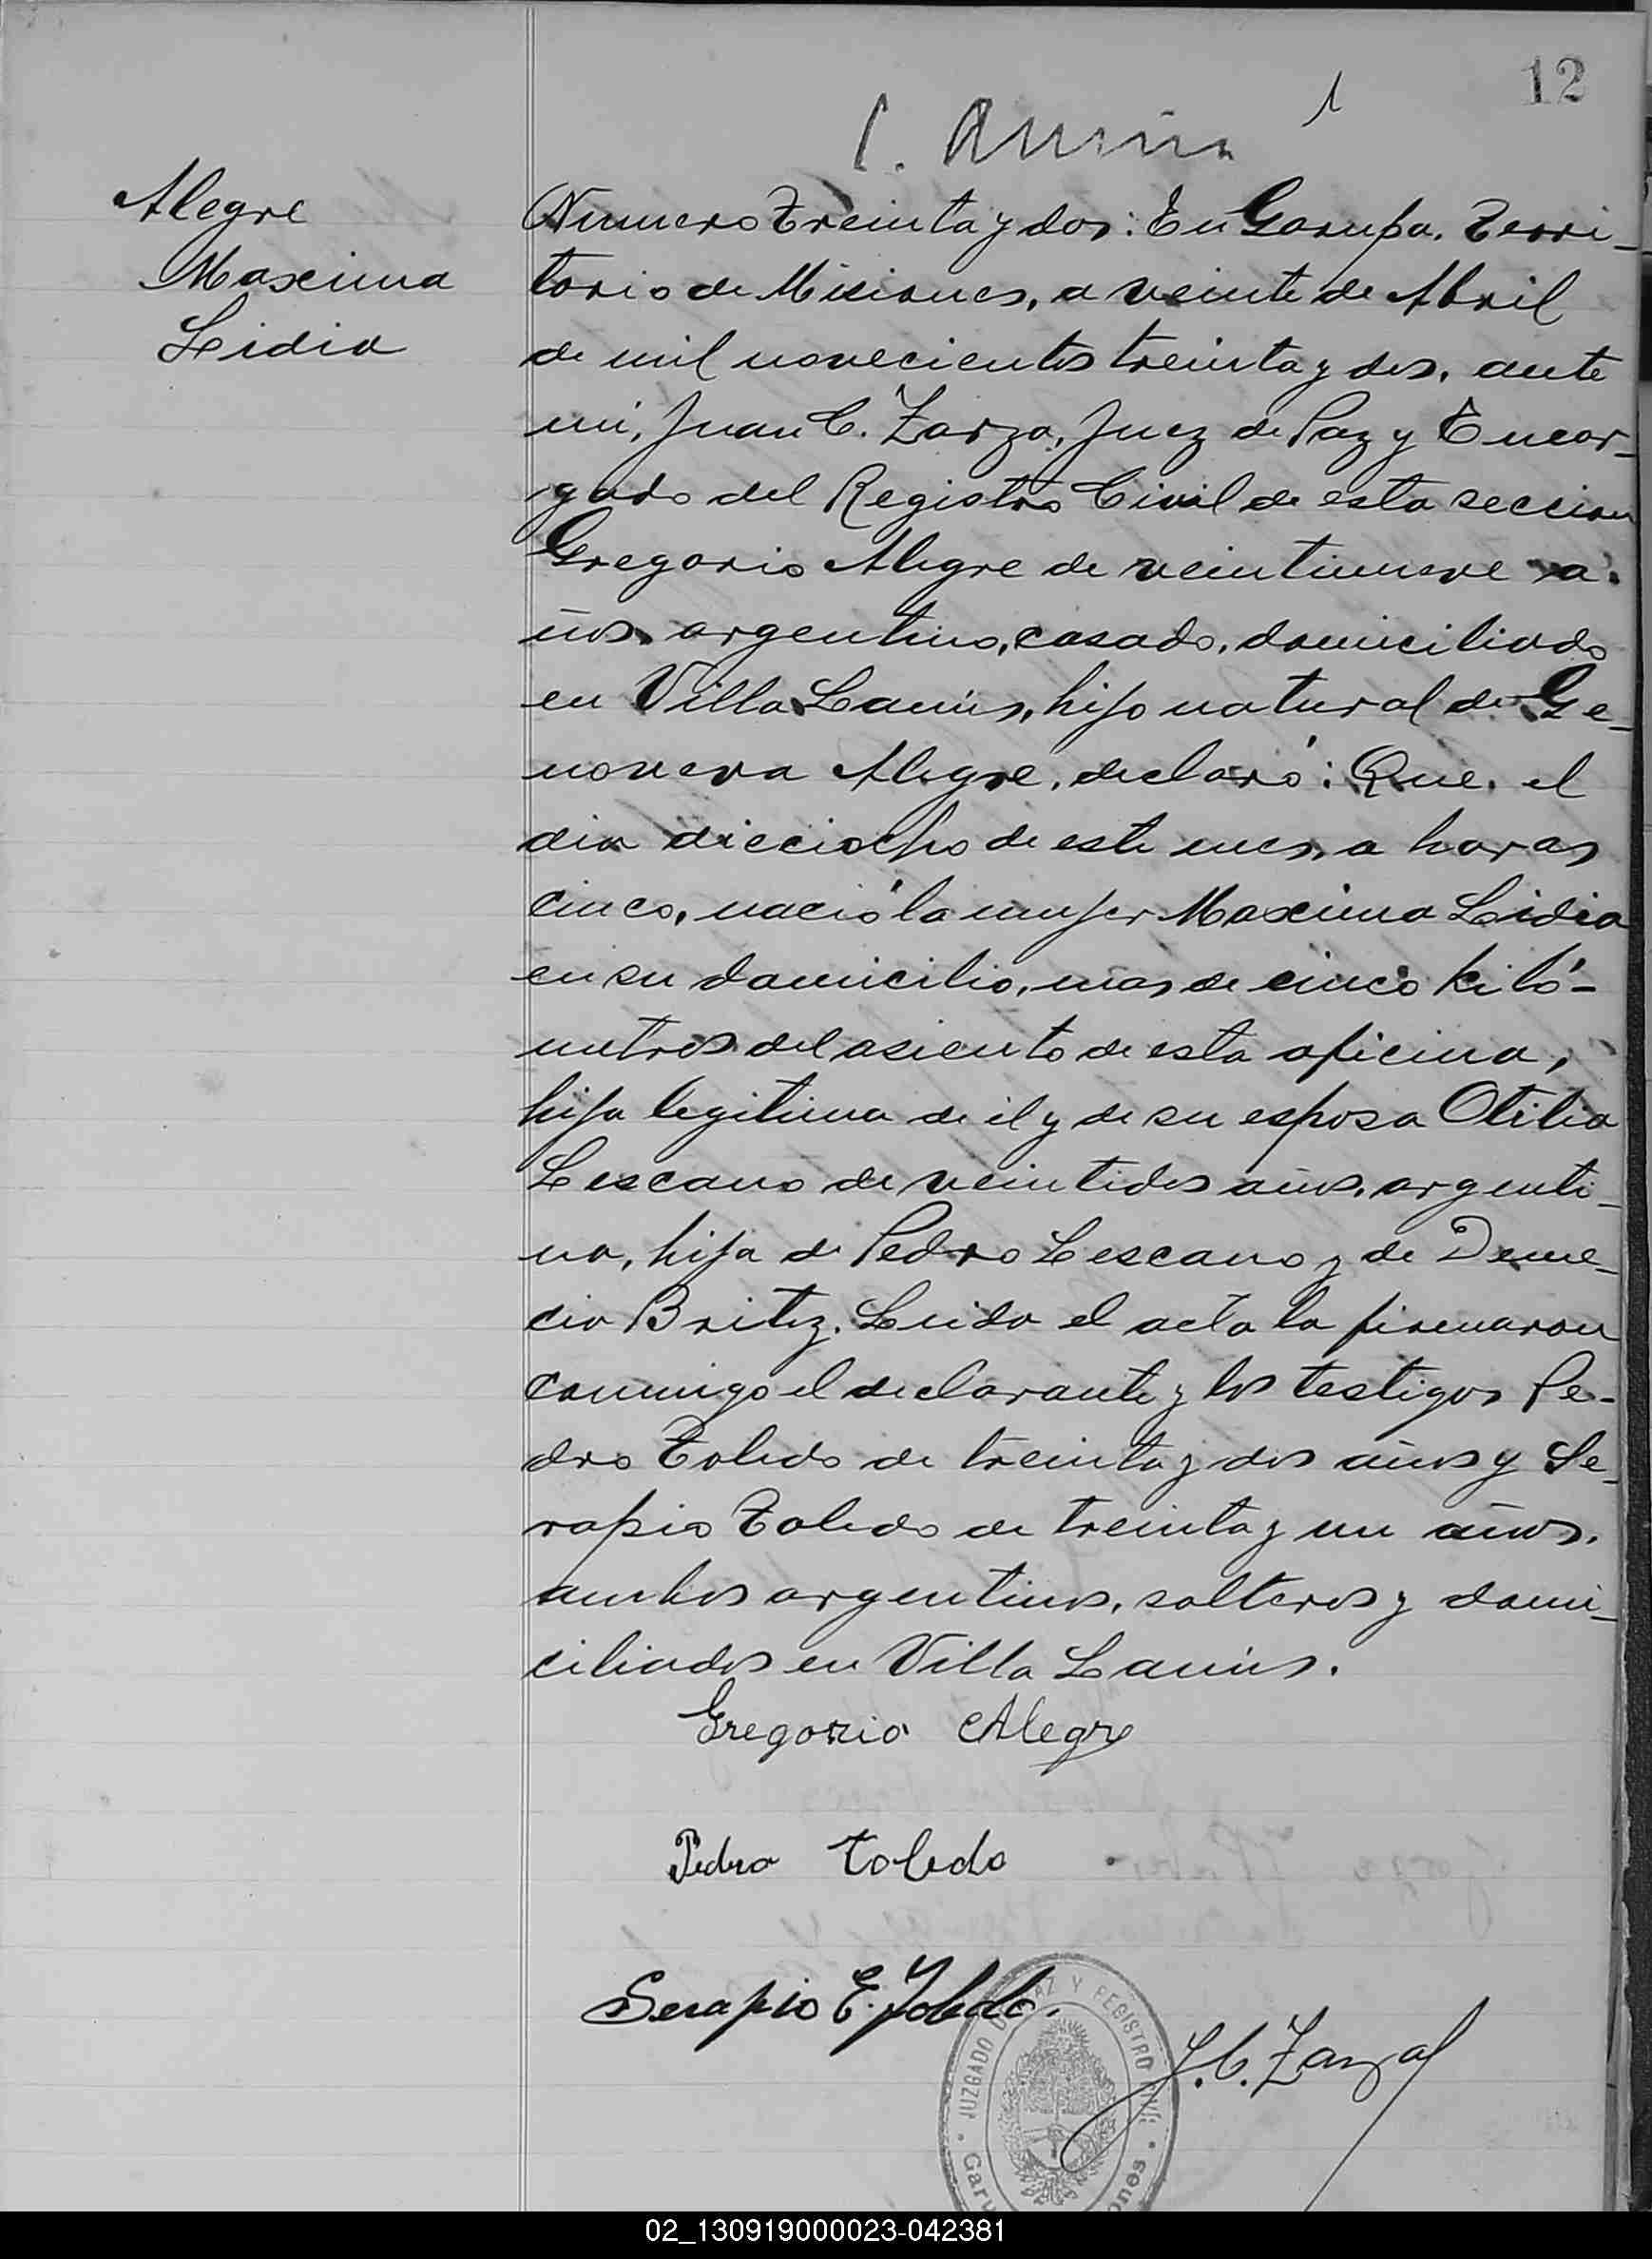 12
1
Alegre
Maxima
Lidia
Numero Treinta y dos: En Garupa. Terri-
torio de Misiones, a veinte de Abril
de mil novecientos treinta y dos, ante
mi, Juan C. Zarza, Juez de Paz y Encar-
gado del Registro Civil de esta seccion
Gregorio Alegre de veintinueve a-
ños, argentino, casado, domiciliado
en Villa Lanús, hijo natural de Ge-
noveva Alegre, declaró: Que, el
dia dieciocho de este mes, a horas
cinco, nació la mujer Maxima Lidia
en su domicilio, mas de cinco kiló-
metros del asiento de esta oficina,
hija legitima de él y de su esposa Otilia
Lescano de veintidos años, argenti-
na, hija de Pedro Lescano y de Deme-
cia Britez. Leida el acta la firmaron
conmigo el declarante y los testigos Pe-
dro Toledo de treinta y dos años y Se-
rapio Toledo de treinta y un años,
ambos argentinos, solteros y domi-
ciliados en Villa Lanús.
Gregorio Alegre
Pedro Toledo
Serapio E. Toledo.
J. C. Zarza
JUZGADO DE PAZ Y REGISTRO CIVIL
02_130919000023-042381